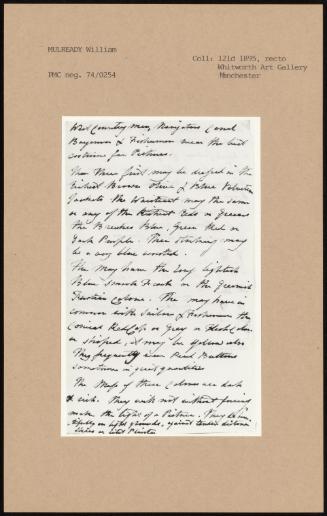 MULREADY William
Coll: 121d 1895, recto
Whitworth Art Gallery
Manchester
PMC neg. 74/0254
West Country men, Navigators Canal
Bargemen & Fishermen wear the best
costume for Pictures.
The three first may be draped in the
richest Brown Olive & Blue Velveteen
Jackets the Waistcoat may the same
or any of the richest reds or Greens
the Breeches Blue, Green Red or
dark Purple. Their stockings may
be a very blue worsted.
The may have the long lightish
Blue Smock Frock or the Greenish
Fustian colour. The may have in
common with Sailors & Fishermen the
Conical Red Cap or Grey or
or striped, it may be Yellow also
They frequently wear Pearl Buttons
sometimes in great quantities
The Mass of these Colours are dark
& rich. They will not without forcing
make the light of a Picture. They
on light grounds, against tender distances
Skies or